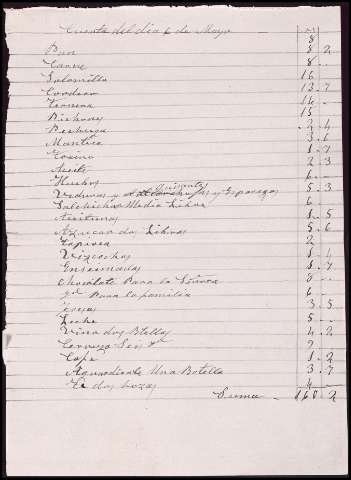 Cuenta del dia 6 de Mayo
8
Pan 8 2
Carne 8
Solomillo 16
Cordero 13 7
Ternera 14
Pichones 15
2 4
Manteca 3 6
Tosino 1 7
Aseite 2 3
Huebos 6
Verduras y Pimientos y Esparagos 5 3
Salchichon Media Libra 6
Aseitunas 1 5
Azucar dos Libras 5 6
Tapioca 2
Vizcochos 1 4
Ensaimadas 1 7
Chocolate Para la Señora 8
Yd Para la familia 6
3 5
Leche 5
Vino dos Btellas 4 2
Cerveza Seis
Cafe 1 2
Aguardiente Una Botella 3 7
Te dos 4
Suma 168 2